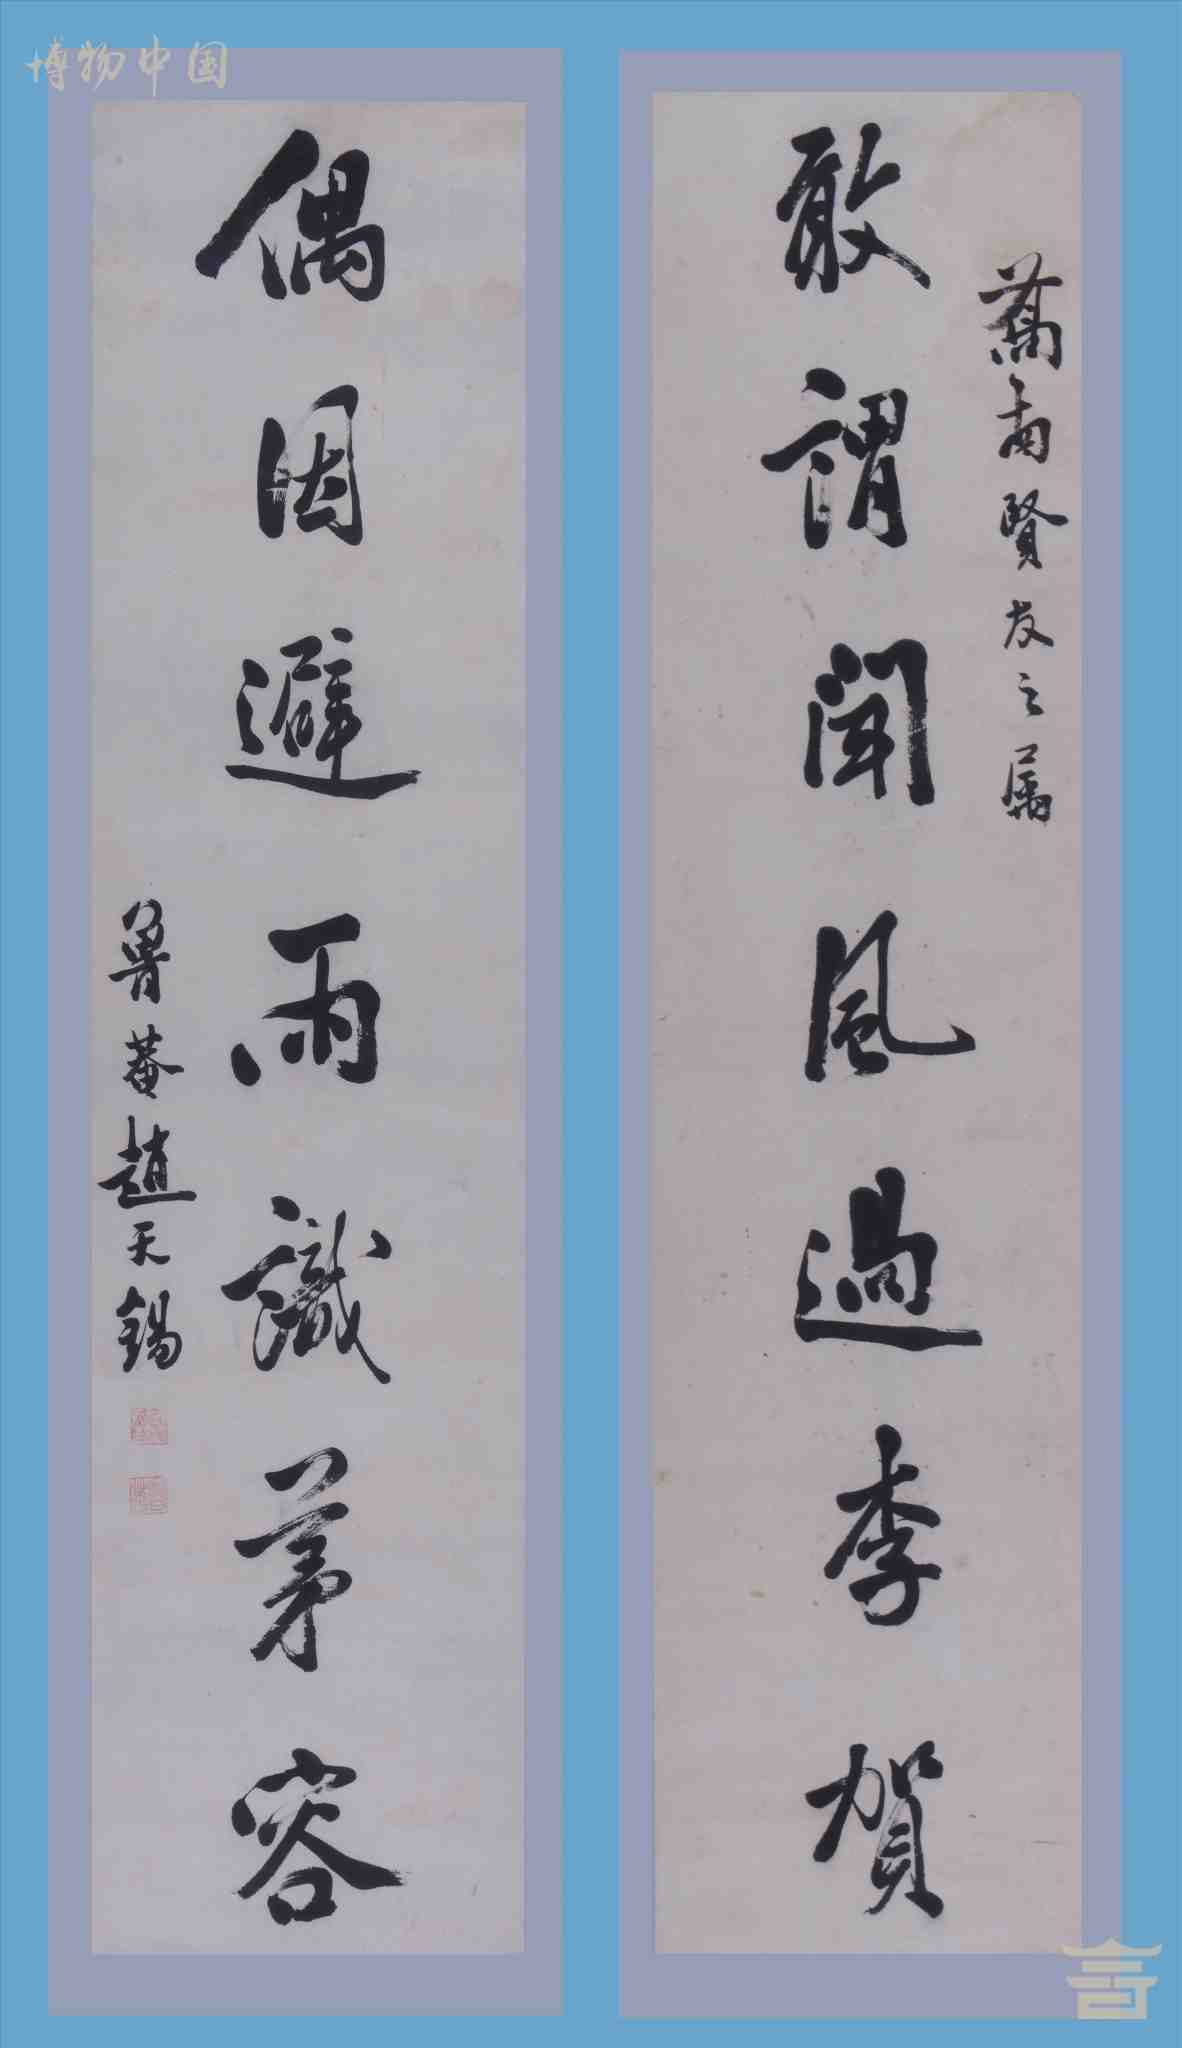 博物中国
萬甫賢友之屬
敢謂聞風過李賀
偶因避雨識茅容
魯菴趙天錫